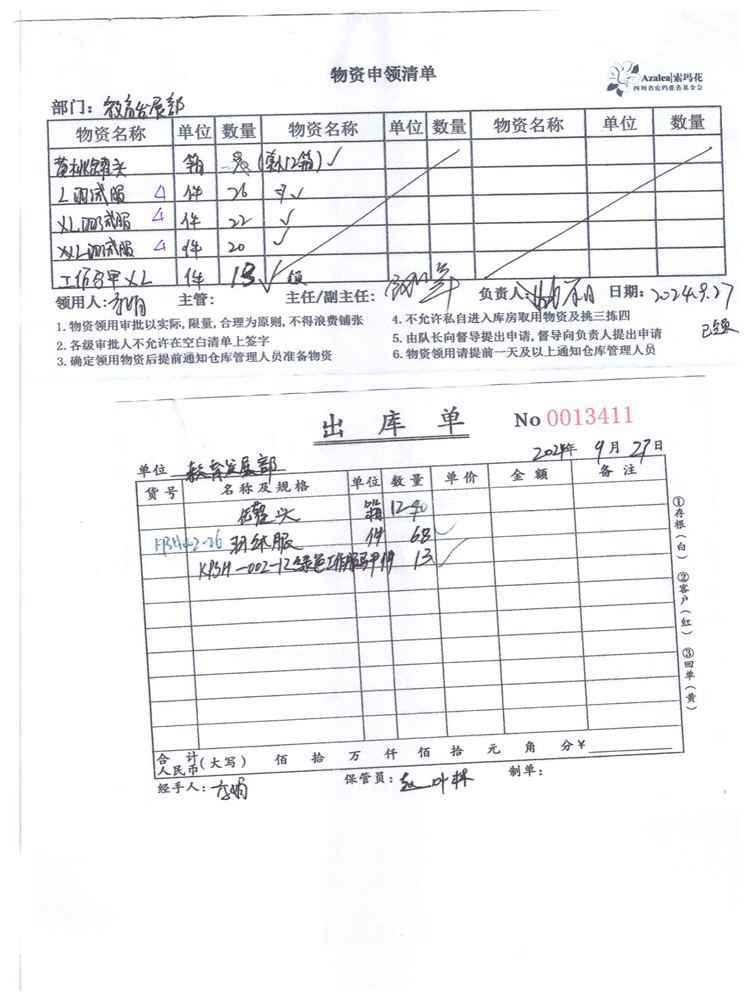 物资申领清单
Azalea|索玛花
四川省索玛慈善基金会
部门: 教育发展部
物资名称 单位 数量 物资名称 单位 数量 物资名称 单位 数量
黄桃罐头 箱 12箱) ✓
L 羽绒服 △ 件 26 ✓
XL羽绒服 △ 件 22 ✓
XXL羽绒服 △ 件 20 ✓
工作马甲XL 件 13 ✓
领用人: 主管: 主任/副主任: 负责人: 日期: 2024.9.27
1.物资领用审批以实际,限量,合理为原则,不得浪费铺张 4.不允许私自进入库房取用物资及挑三拣四
2.各级审批人不允许在空白清单上签字 5.由队长向督导提出申请,督导向负责人提出申请
3.确定领用物资后提前通知仓库管理人员准备物资 6.物资领用请提前一天及以上通知仓库管理人员
出库单 No 0013411
2024年 9月 27日
单位 教育发展部
货号 名称及规格 单位 数量 单价 金额 备注
罐头 箱 12
羽绒服 件 68 ✓
KBSH-002-12绿色工作服马甲 件 13 ✓
①存根(白) ②客户(红) ③回单(黄)
合计人民币(大写) 佰 拾 万 仟 佰 拾 元 角 分 ¥
经手人: 保管员: 制单: